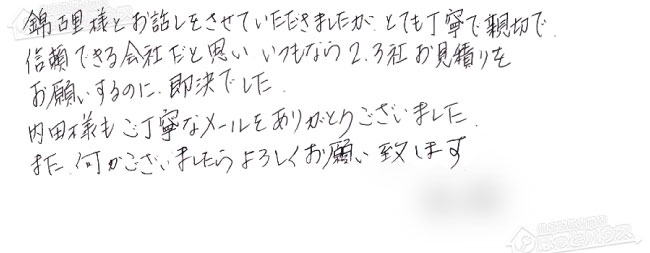 錦古里様とお話しをさせていただきましたが とても丁寧で親切で
信頼できる会社だと思い いつもなら2.3社お見積りを
お願いするのに、即決でした.
内田様もご丁寧なメールをありがとうございました.
また 何かございましたらよろしくお願い致します